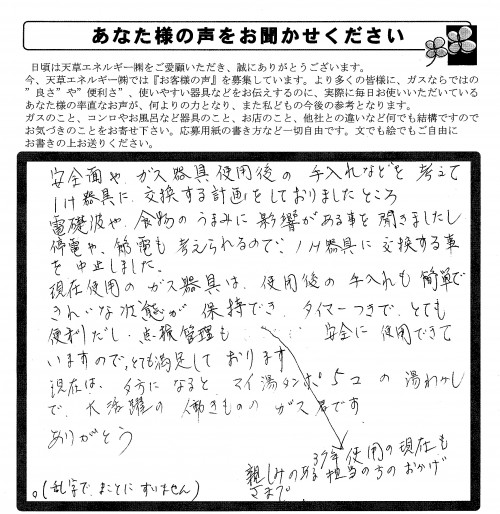 あなた様の声をお聞かせください
日頃は天草エネルギー㈱をご愛顧いただき、誠にありがとうございます。
今、天草エネルギー㈱では『お客様の声』を募集しています。より多くの皆様に、ガスならではの
"良さ"や"便利さ"、使いやすい器具などをお伝えするのに、実際に毎日お使いいただいている
あなた様の率直なお声が、何よりの力となり、また私どもの今後の参考となります。
ガスのこと、コンロやお風呂など器具のこと、お店のこと、他社との違いなど何でも結構ですので
お気づきのことをお寄せ下さい。応募用紙の書き方など一切自由です。文でも絵でもご自由に
お書きの上お送りください。
安全面や ガス器具使用後の 手入れなどを 考えて
IH器具に 交換する計画をしておりましたところ
電磁波や 食物のうまみに 影響がある事を聞きましたし
停電や、節電も 考えられるので、IH器具に交換する事
を中止しました。
現在使用の ガス器具は、使用後の 手入れも 簡単で
きれいな状態が 保持でき タイマーつきで、とても
便利だし 点検管理も …… 安全に使用できて
いますので、とても満足して おります
現在は、夕方に なると マイ湯タンポ 5コ の 湯わかし
で、大活躍の 働きものの ガス君です
ありがとう
37年使用の現在も
親しみのある 担当の方のおかげ
さまで
。(乱字で まことに すいません)